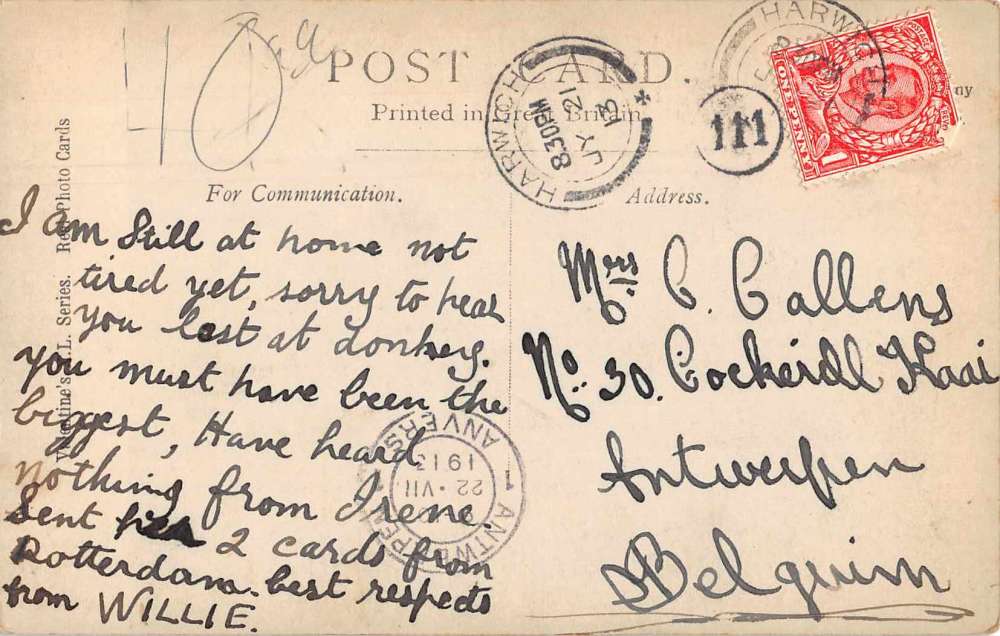 40
POST CARD.
Printed in Great Britain
For Communication.
Address.
Valentine's X.L. Series. Real Photo Cards
HARWICH
8.30 PM
21 JY
13
HARWICH
111
POSTAGE REVENUE
ONE PENNY
I am still at home not
tired yet, sorry to hear
you lost at donkey.
you must have been the
biggest, Have heard
nothing from Irene.
Sent her 2 cards from
Rotterdam. best respects
from WILLIE.
Mrs C. Callens
No. 30. Cockerdll Kaai
Antwerpen
Belguim
1 ANTWERPEN 1 ANVERS
22 · VII
1913